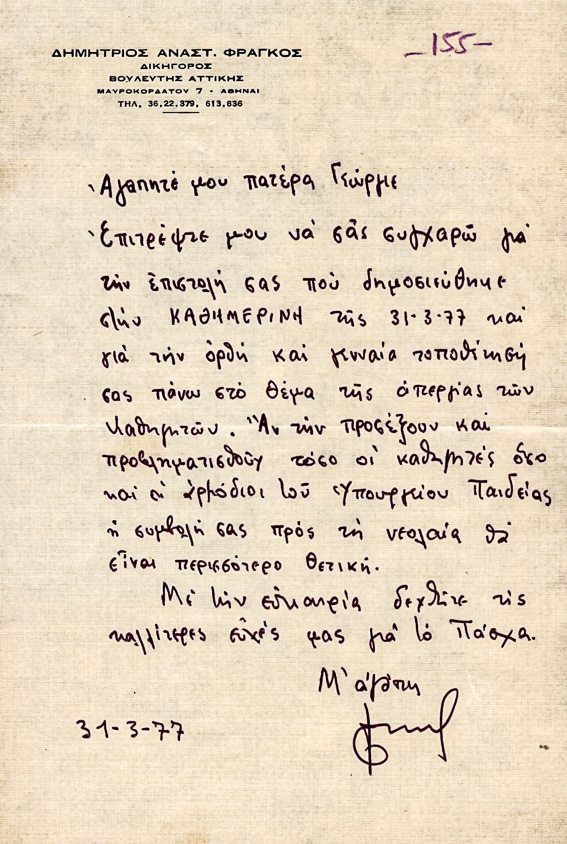 -155-
ΔΗΜΗΤΡΙΟΣ ΑΝΑΣΤ. ΦΡΑΓΚΟΣ
ΔΙΚΗΓΟΡΟΣ
ΒΟΥΛΕΥΤΗΣ ΑΤΤΙΚΗΣ
ΜΑΥΡΟΚΟΡΔΑΤΟΥ 7 - ΑΘΗΝΑΙ
ΤΗΛ. 36.22.379, 613.836
Ἀγαπητέ μου πατέρα Γεώργιε
Ἐπιτρέψτε μου νά σᾶς συγχαρῶ γιά
τήν ἐπιστολή σας πού δημοσιεύθηκε
στήν ΚΑΘΗΜΕΡΙΝΗ τῆς 31-3-77 καί
γιά τήν ὀρθή καί γενναία τοποθέτησή
σας πάνω στό θέμα τῆς ἀπεργίας τῶν
καθηγητῶν. Ἄν τήν προσέξουν καί
προβληματισθοῦν τόσο οἱ καθηγητές ὅσο
καί οἱ ἁρμόδιοι τοῦ Ὑπουργείου Παιδείας
ἡ συμβολή σας πρός τή νεολαία θά
εἶναι περισσότερο θετική.
Μέ τήν εὐκαιρία δεχθῆτε τίς
καλλίτερες εὐχές μας γιά τό Πάσχα.
Μ' ἀγάπη
31-3-77